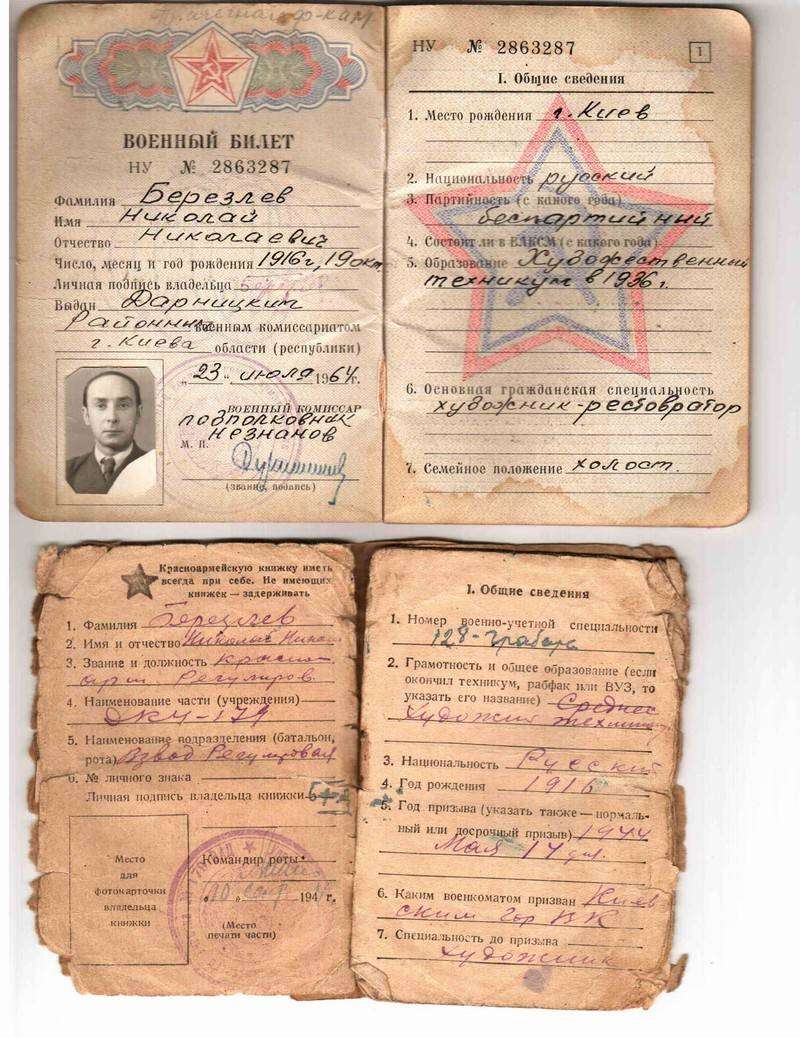 ВОЕННЫЙ БИЛЕТ
НУ № 2863287
Фамилия Березлев
Имя Николай
Отчество Николаевич
Число, месяц и год рождения 1916г, 19 окт
Личная подпись владельца
Выдан Дарницким
Районным военным комиссариатом
г. Киева области (республики)
„23“ июля 1964г.
ВОЕННЫЙ КОМИССАР
подполковник
Незнанов
М. П.
(звание, подпись)
НУ № 2863287
1
I. Общие сведения
1. Место рождения г. Киев
2. Национальность русский
3. Партийность (с какого года)
беспартийный
4. Состоит ли в ВЛКСМ (с какого года)
5. Образование Художественный
техникум в 1936 г.
6. Основная гражданская специальность
художник-рестовратор
7. Семейное положение холост.
Красноармейскую книжку иметь
всегда при себе. Не имеющих
книжек — задерживать
1. Фамилия Березлев
2. Имя и отчество Николай Никол
3. Звание и должность Красно
арм. Регулиров.
4. Наименование части (учреждения)
ДКУ-179
5. Наименование подразделения (батальон,
рота) Взвод Регулировая
6. № личного знака
Личная подпись владельца книжки
Место
для
фотокарточки
владельца
книжки
Командир роты
194 г.
(Место
печати части)
I. Общие сведения
1. Номер военно-учетной специальности
128-
2. Грамотность и общее образование (если
окончил техникум, рабфак или ВУЗ, то
указать его название) Среднее
Художник техникум
3. Национальность Русский
4. Год рождения 1916
5. Год призыва (указать также — нормаль-
ный или досрочный призыв) 1944
Мая 14 дня.
6. Каким военкоматом призван Киев
ским Гор ВК
7. Специальность до призыва
художник